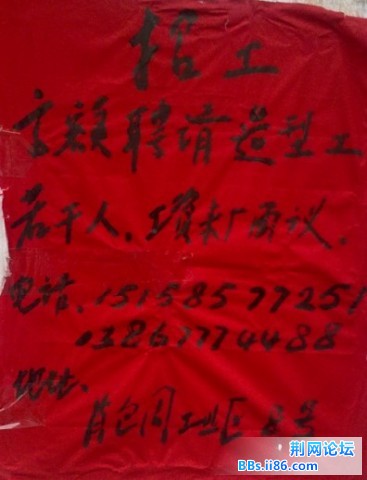 招工
高额聘请造型工
若干人，工资来厂面议．
电话、15158577251
13867774488
地址、
肖包周工业区8号
荆网论坛
BBs.ii86.com